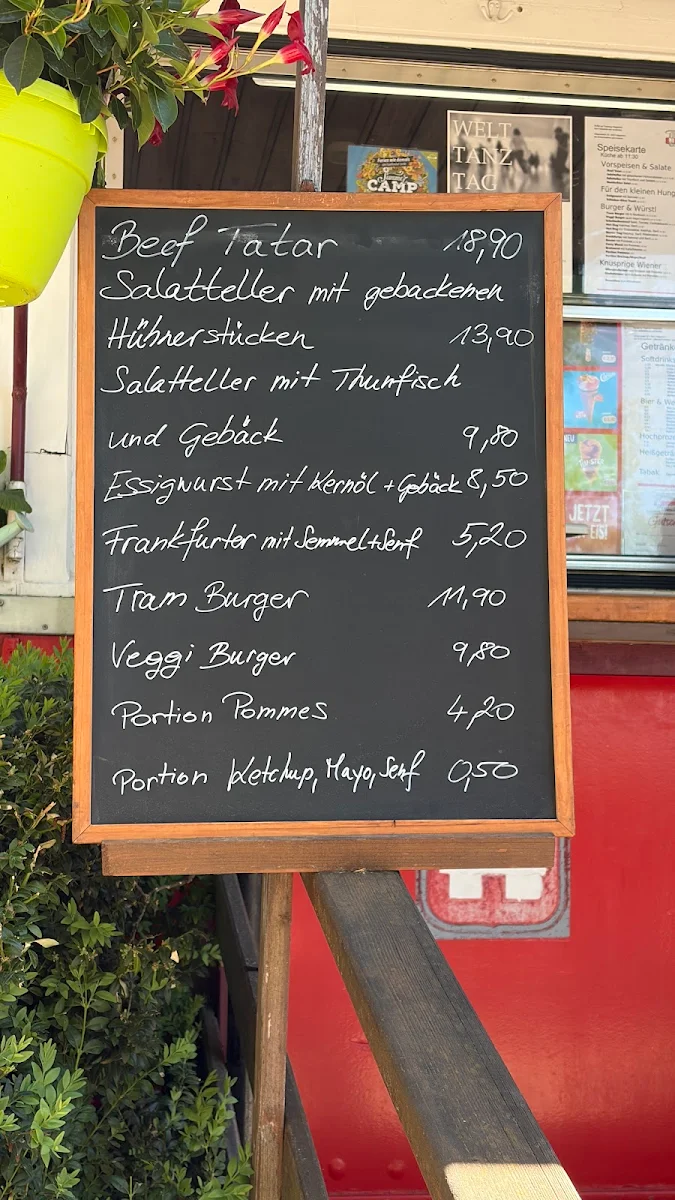 Beef Tatar 18,90
Salatteller mit gebackenen
Hühnerstücken 13,90
Salatteller mit Thunfisch
und Gebäck 9,80
Essigwurst mit Kernöl + Gebäck 8,50
Frankfurter mit Semmel + Senf 5,20
Tram Burger 11,90
Veggi Burger 9,80
Portion Pommes 4,20
Portion Ketchup, Mayo, Senf 0,50
CAMP
WELT
TANZ
TAG
Speisekarte
Küche ab 11:30
Vorspeisen & Salate
Für den kleinen Hung
Burger & Würstl
Knusprige Wiener
Getränk
Softdrinks
Bier & We
Tabak
JETZT
EIS!